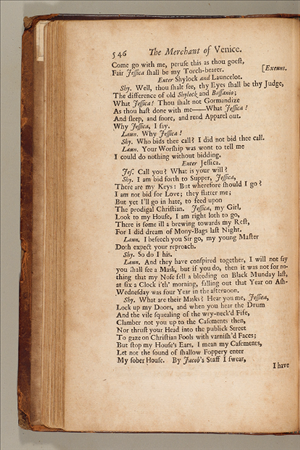 546 The Merchant of Venice.
Come go with me, peruse this as thou goest,
Fair Jessica shall be my Torch-bearer. [Exeunt.
Enter Shylock and Launcelot.
Shy. Well, thou shalt see, thy Eyes shall be thy Judge,
The difference of old Shylock and Bassanio;
What Jessica! Thou shalt not Gormandize
As thou hast done with me——What Jessica!
And sleep, and snore, and rend Apparel out.
Why Jessica, I say.
Laun. Why Jessica!
Shy. Who bids thee call? I did not bid thee call.
Laun. Your Worship was wont to tell me
I could do nothing without bidding.
Enter Jessica.
Jes. Call you? What is your will?
Shy. I am bid forth to Supper, Jessica,
There are my Keys: But wherefore should I go?
I am not bid for Love; they flatter me;
But yet I'll go in hate, to feed upon
The prodigal Christian. Jessica, my Girl,
Look to my House, I am right loth to go,
There is some ill a brewing towards my Rest,
For I did dream of Mony-Bags last Night.
Laun. I beseech you Sir go, my young Master
Doth expect your reproach.
Shy. So do I his.
Laun. And they have conspired together, I will not say
you shall see a Mask, but if you do, then it was not for no-
thing that my Nose fell a bleeding on Black Munday last,
at six a Clock i'th' morning, falling out that Year on Ash-
Wednesday was four Year in the afternoon.
Shy. What are their Masks? Hear you me, Jessica,
Lock up my Doors, and when you hear the Drum
And the vile squealing of the wry-neck'd Fife,
Clamber not you up to the Casements then,
Nor thrust your Head into the publick Street
To gaze on Christian Fools with varnish'd Faces;
But stop my House's Ears, I mean my Casements,
Let not the sound of shallow Foppery enter
My sober House. By Jacob's Staff I swear,
I have